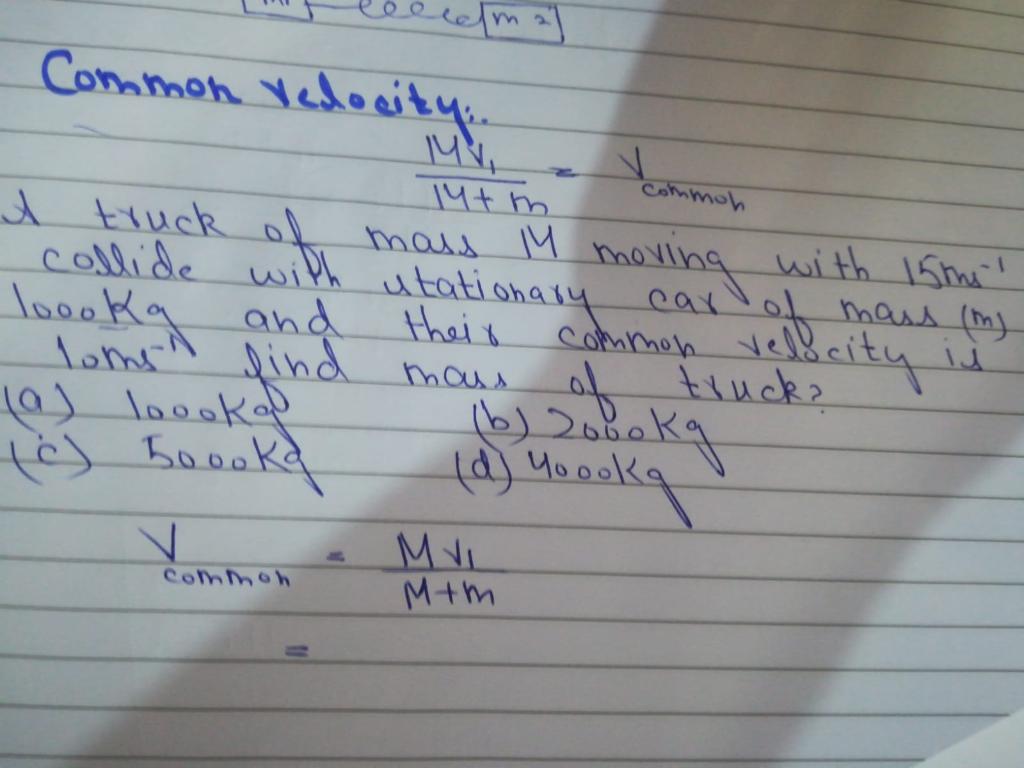 m 2
Common velocity:.
MV₁ / M+m = V common
A truck of mass M moving with 15ms⁻¹
collide with stationary car of mass (m)
1000Kg and their common velocity is
10ms⁻¹ find mass of truck?
(a) 1000Kg (b) 2000Kg
(c) 5000Kg (d) 4000Kg
V common = MV₁ / M+m
=